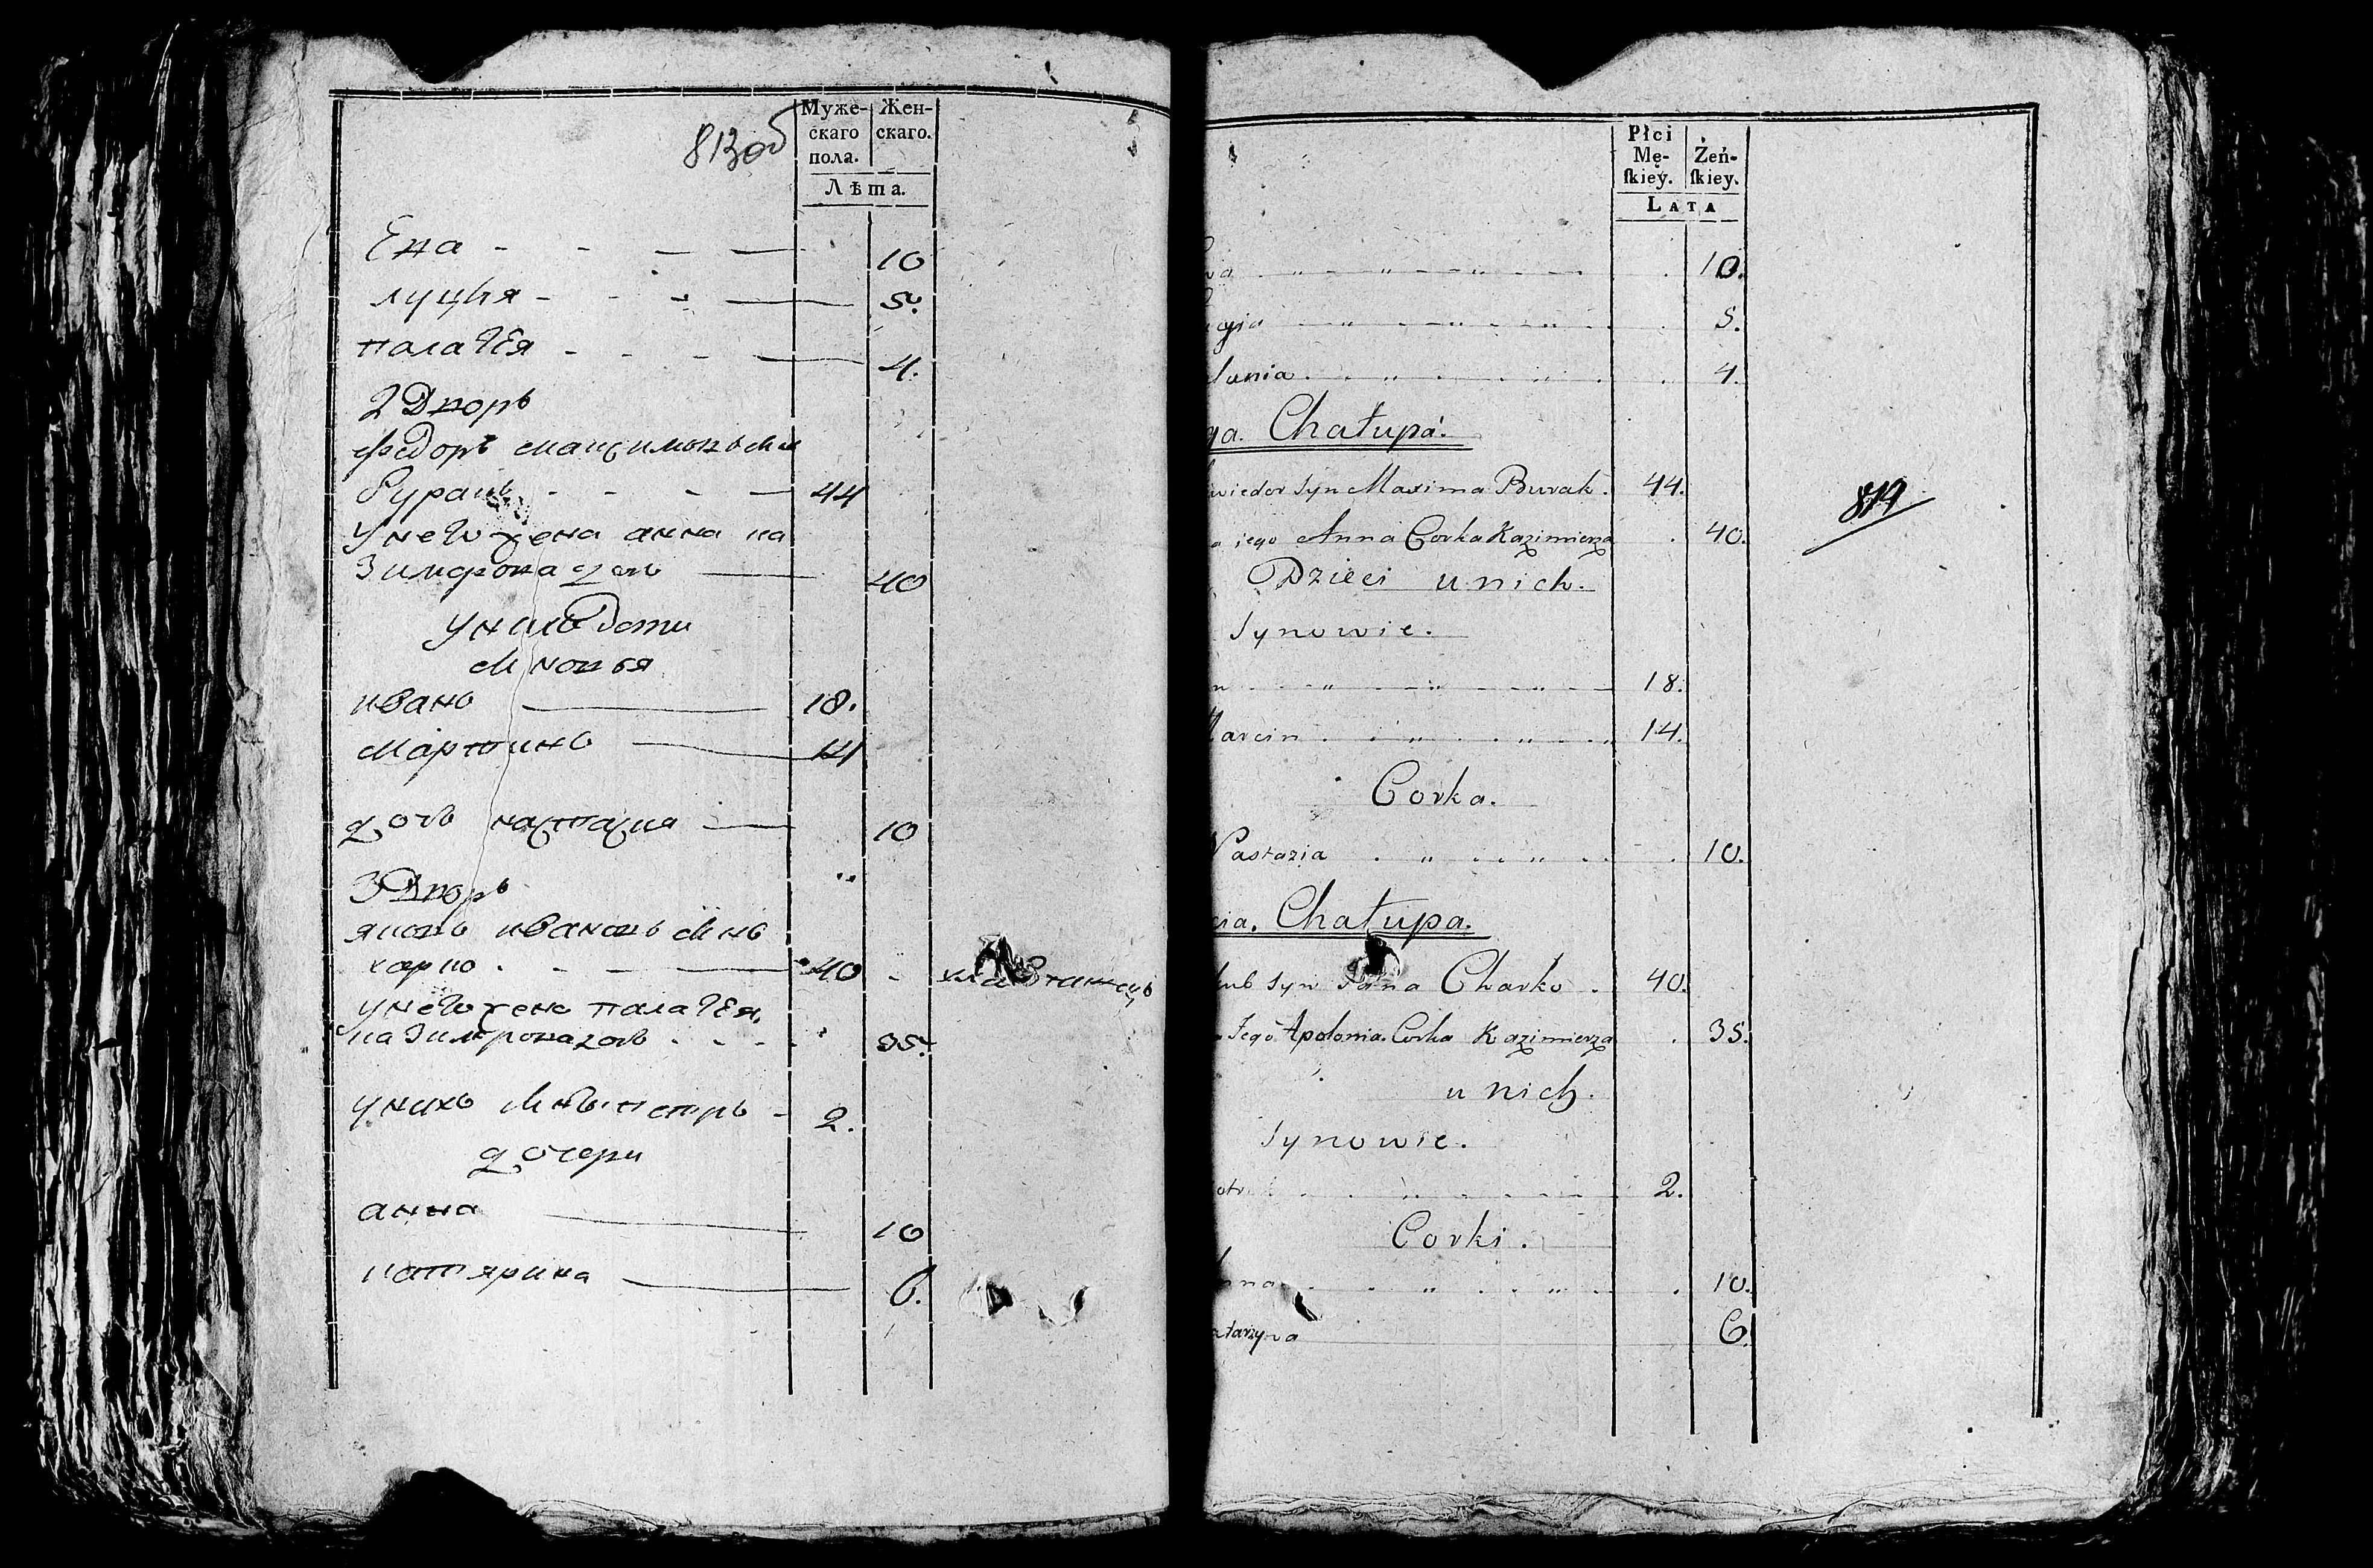 813об
Муже- Жен-
скаго скаго.
пола.
Лѣта.
Ева 10
луцыя 5.
палагея 4.
2 Дворъ
федоръ максимовъ сынъ
Буракъ 44
У него жена анна ка
зимѣрова доч 40
у нихъ дети
сыновья
иванъ 18.
мартинъ 14
дочь настасия 10
3 Дворъ
яковъ ивановъ сынъ
харко 40
у него жена палагея
казимерова дочь 35.
у нихъ сынъ петръ 2.
дочери
анна 10
катярина 6.
Płci
Mę- Żeń-
ſkiey. ſkiey.
LATA
wa 10.
cyia 5.
lonia 4.
ga. Chałupa.
wiedor Syn Maxima Burak. 44.
a iego Anna Corka Kazimierza 40.
Dzieci u nich.
Synowie.
n 18.
Marcin 14.
Corka.
Nastazia 10.
cia. Chałupa.
kub Syn Jana Charko 40.
a Jego Apolonia Corka Kazimierza 35.
u nich.
Synowie.
otr 2.
Corki.
nna 10.
atarzyna 6.
819